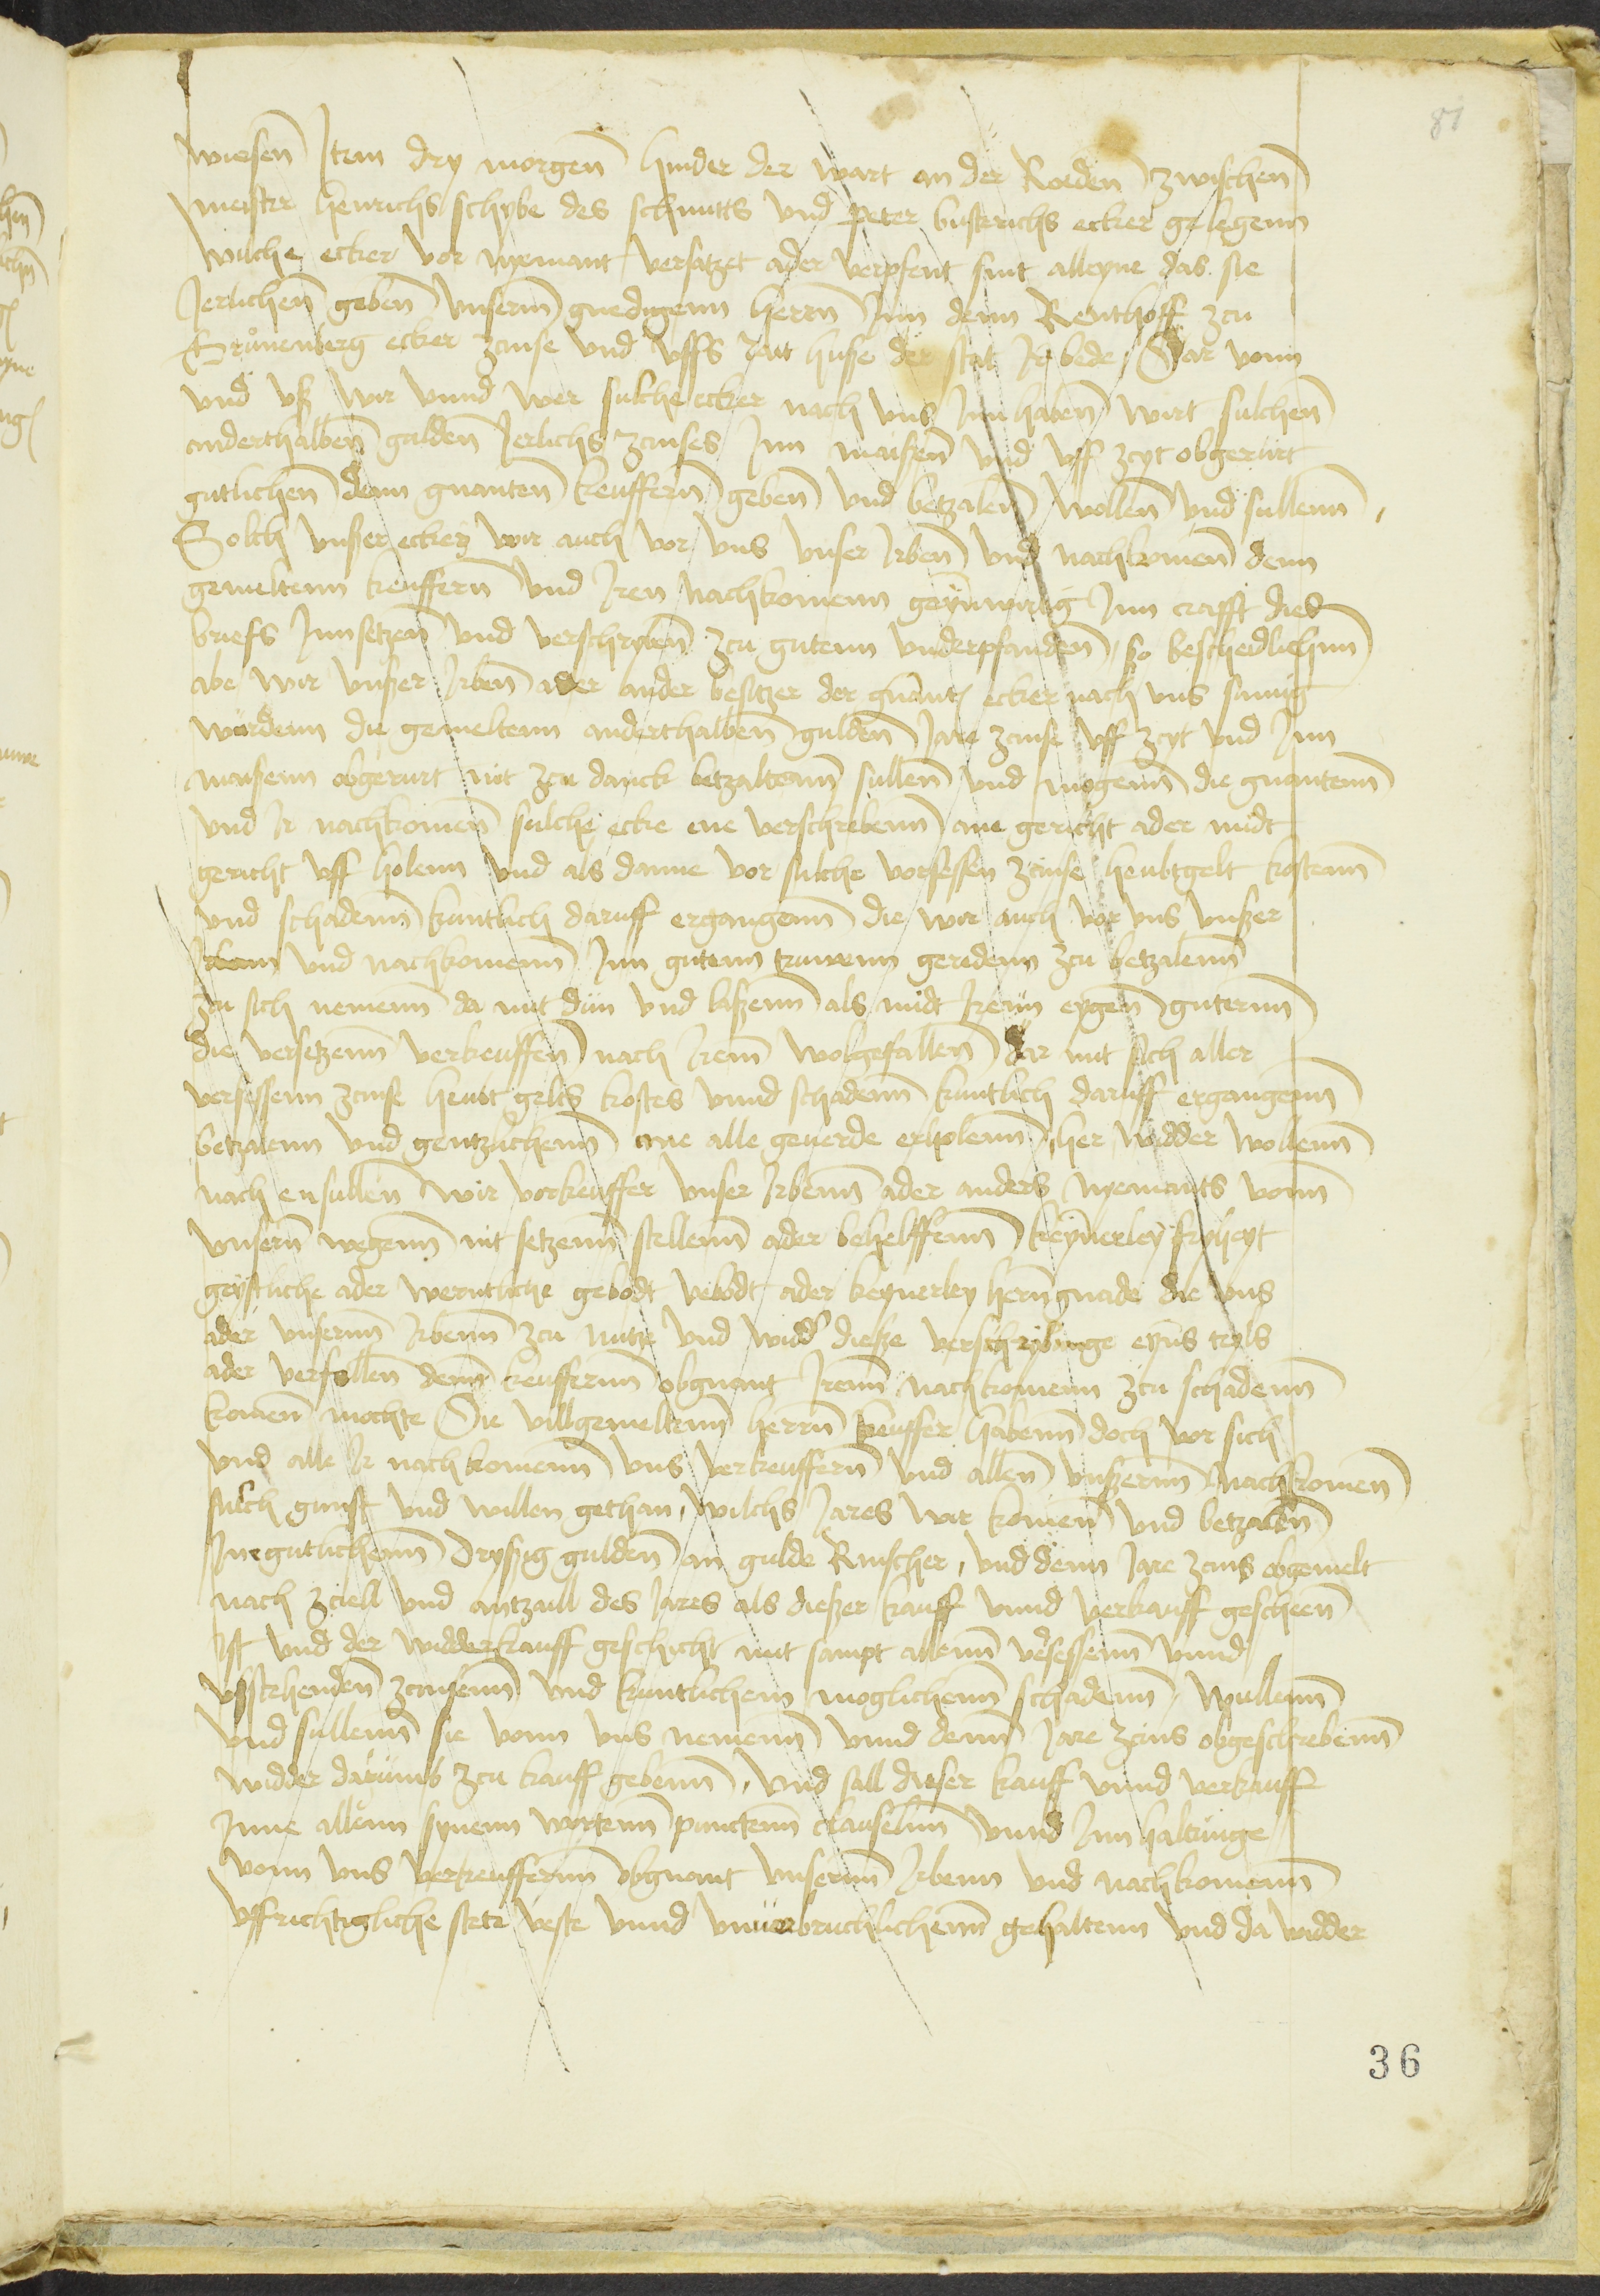 81
wiesen Jtem dry morgen hinder der wart an der Roiden zwischen
meister Henrichs schybe des schmitts vnd peter busterichs ecker gelegenn
wilche ecker vor nyemant versatzet ader verpfent sint alleyne das sie
Jerlichen geben vnserm gnedigenn herrn Jnn denn Renthoff zcu
Grunenberg ecker zcinse vnd vffs rait huse der stat Jr bede Dar vonn
vnd vß wir vnnd wer sulche ecker nach vns Jnnhaben wirt sulchen
anderthalben gulden Jerlichs zcinses Jnn maißen vnd vff zcyt obgerurt
gutlichen denn gnanten keuffern geben vnd betzalen wollen vnd sullenn
Solch vnser ecker wir auch vor vns vnser Jrben vnd nachkomen denn
gemeltenn keuffern vnd Jren nachkomenn geynwirtig Jnn crafft dies
briefs Jnnsetzen vnd verschryben zcu gutenn vnderpfanden so bescheidlichenn
abe wir vnßer Jrben ader ander besitzer der gnant ecker nach vns sumig
würdenn die gemeltenn anderthalben gulden Jare zcinse vff zcyt vnd Jnn
maißenn obgerurt nit zcu danck betzaltenn sullen vnd mogenn die gnantenn
vnd Jr nachkomen sulche ecke ene verschrebenn ane gericht ader midt
gericht vff holenn vnd als danne vor sulche versessen zcinse heubtgelt kostenn
vnd schadenn kuntlich daruff ergangenn die wir auch vor vns vnßer
Jrbenn vnd nachkomenn Jnn gutenn truwenn geredenn zcu betzalenn
zcu sich nemenn da mit dün vnd laßenn als midt Jrenn eygen guternn
die versetzenn verkeuffen nach Jrem wolgefallen dar mit sich aller
versessenn zcinse heubt gelts kostes vnnd schadenn kuntlich daruff ergangenn
betzalenn vnd gentzlichenn ane alle geuerde erholenn her widder wollenn
nach en sullen wir vorkeuffer vnser Jrbenn ader anders nyemants vonn
vnsern wegenn nit setzenn stellenn ader behelffenn keynerley fryheyt
geystliche ader werntliche gebodt vebodt ader keynerley hern gnade die vns
ader vnsernn Jrbenn zcu nutze vnd widd dieße verschrybunge eyns teyls
ader verfallen denn keuffernn obgnant Jrenn nachkomenn zcu schadenn
komen mochte Die villgemeltenn herrn keuffer habenn doch vor sich
vnd alle Jr nachkomenn vns verkeuffern vnd allen vnßernn nachkomen
sulch gunst vnd willen gethan wilchs Jares wir komen vnd betzalen
Jne gutlichenn dryssig gulden an gulde Rinscher vnd denn Jare zcins obgemelt
nach zciell vnd antzall des Jares als dießer kauff vnnd verkauff gescheen
Jst vnd der widderkauff geschicht mit sampt allenn vesessenn vnnd
vßstehenden zcinsenn vnd kuntlichem moglichenn schadenn Wullenn
vnd sullenn sie vonn vns nemenn vnnd denn Jare zcins obgeschrebenn
widder darumb zcu kauff gebenn Vnd sall dieser kauff vnnd verkauff
Jnne allenn synenn wortenn punctenn clauseln vnnd Jnnhaltunge
vonn vns verkeuffernn obgnant vnsernn Jrbenn vnd nachkomenn
vffrichtigliche stete veste vnnd vnuerbruchlichenn gehaltenn vnd da widder
36